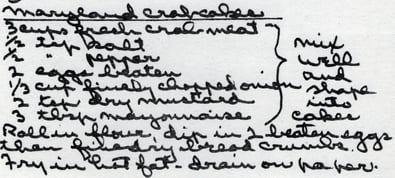 Maryland crab cakes
3 cups fresh crab meat
1/2 tsp salt
1/2 " pepper
2 eggs beaten
1/3 cup finely chopped onion
2 tsp dry mustard
3 tbsp mayonnaise
mix
well
and
shape
into
cakes
Roll in flour, dip in 2 beaten eggs
then fine dry bread crumbs.
Fry in hot fat - drain on paper.